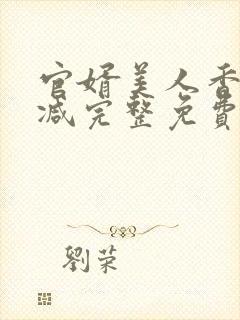 官婿美人香
减完整免費
劉荣